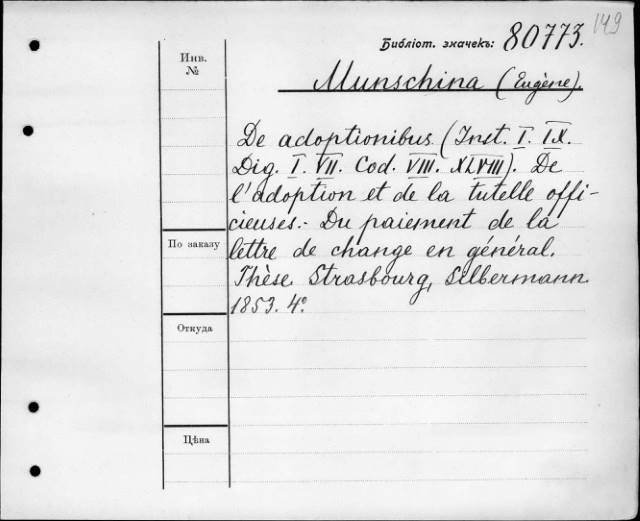 149
Библіот. значекъ: 80773.
Инв.
№
Munschina (Eugène).
De adoptionibus (Inst. I. IX.
Dig. I. VII. Cod. VIII. XLVIII). De
l'adoption et de la tutelle offi-
cieuses.- Du paiement de la
По заказу
lettre de change en général.
Thèse. Strasbourg, Silbermann
1853. 4º.
Откуда
Цѣна